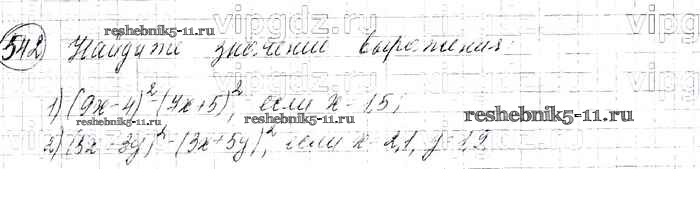 vipgdz.ru
542 Найдите значение выражения:
reshebnik5-11.ru
vipgdz.ru
1) (9x-4)²-(7x+5)², если x=1,5;
reshebnik5-11.ru
reshebnik5-11.ru
2) (5x-3y)²-(3x+5y)², если x=2,1, y=1,9
reshebnik5-11.ru
vipgdz.ru